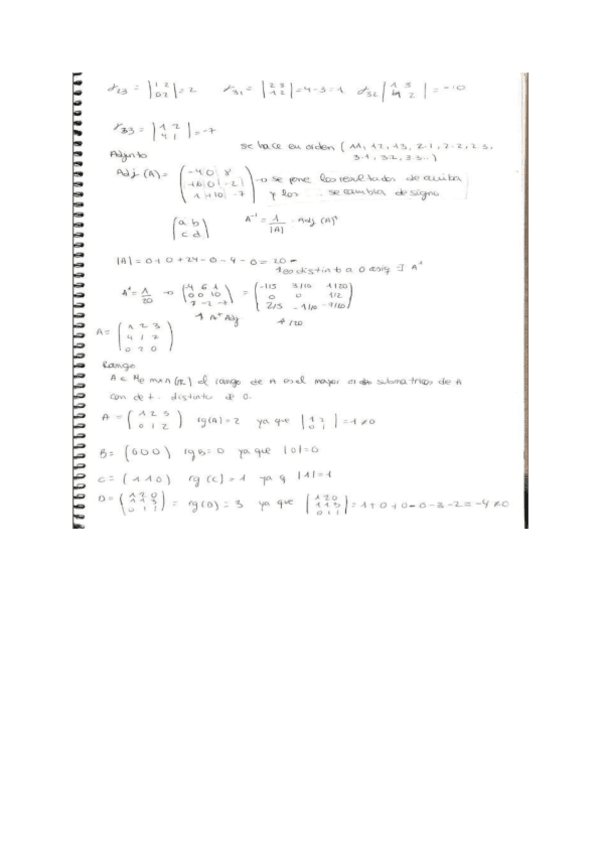 γ23 = |1 2 / 0 2| = 2   γ31 = |2 3 / 1 2| = 4-3 = 1   γ32 |1 3 / 4 2| = -10
γ33 = |1 2 / 4 1| = -7
se hace en orden (11, 12, 13, 2.1, 2.2, 2.3,
3.1, 3.2, 3.3...)
Adjunto
Adj (A) = → se pone los resultados de arriba
y los se cambia de signo
(a b / c d)   A⁻¹ = 1/|A| · Adj (A)ᵗ
|A| = 0+0+24-0-4-0 = 20
es distinto a 0 ∃ A⁻¹
A⁻¹ = 1/20 → = (-1/5 3/10 1/20 / 0 0 1/2 / 2/5 -1/10 -7/20)
÷/20
A = (1 2 3 / 4 1 2 / 0 2 0)
Rango
A ∈ M mxn (R) el rango de A es el mayor submatrices de A
con det. distinto de 0.
A = (1 2 3 / 0 1 2)   rg(A) = 2   ya que |1 2 / 0 1| = 1 ≠ 0
B = (0 0 0)   rg B = 0   ya que |0| = 0
C = (1 1 0)   rg (C) = 1   ya q |1| = 1
D = (1 2 0 / 1 1 3 / 0 1 1) = rg(D) = 3   ya que |1 2 0 / 1 1 3 / 0 1 1| = 1+0+0-0-3-2 = -4 ≠ 0